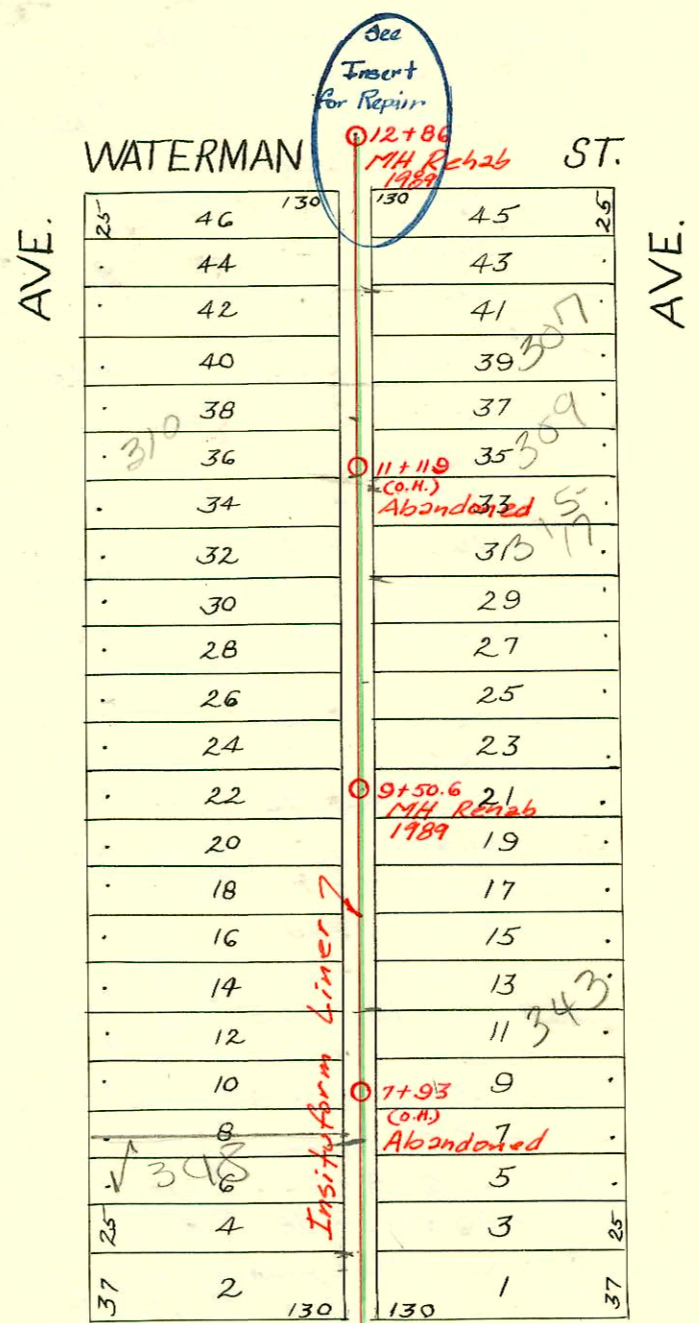 See
Insert
for Repair
12+86
MH Rehab
1989
WATERMAN ST.
AVE.
AVE.
25 46 130
130 45 25
44 43
42 41
307
40 39
38 37
309
310
36 35
11+119
(O.H.)
Abandoned
34 33
32 31
30 29
28 27
26 25
24 23
22 21
9+50.6
MH Rehab
1989
20 19
18 17
16 15
14 13
343
12 11
10 9
7+93
(O.H.)
Abandoned
8 7
348
6 5
25 4 3 25
37 2 130
130 1 37
Insituform Liner